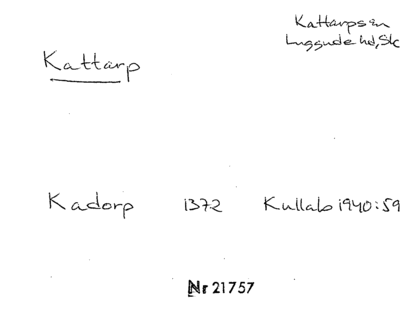 Kattarps sn
Luggude hd, Sk
Kattarp
Kadorp 1372 Kullabo 1940:59
Nr 21757